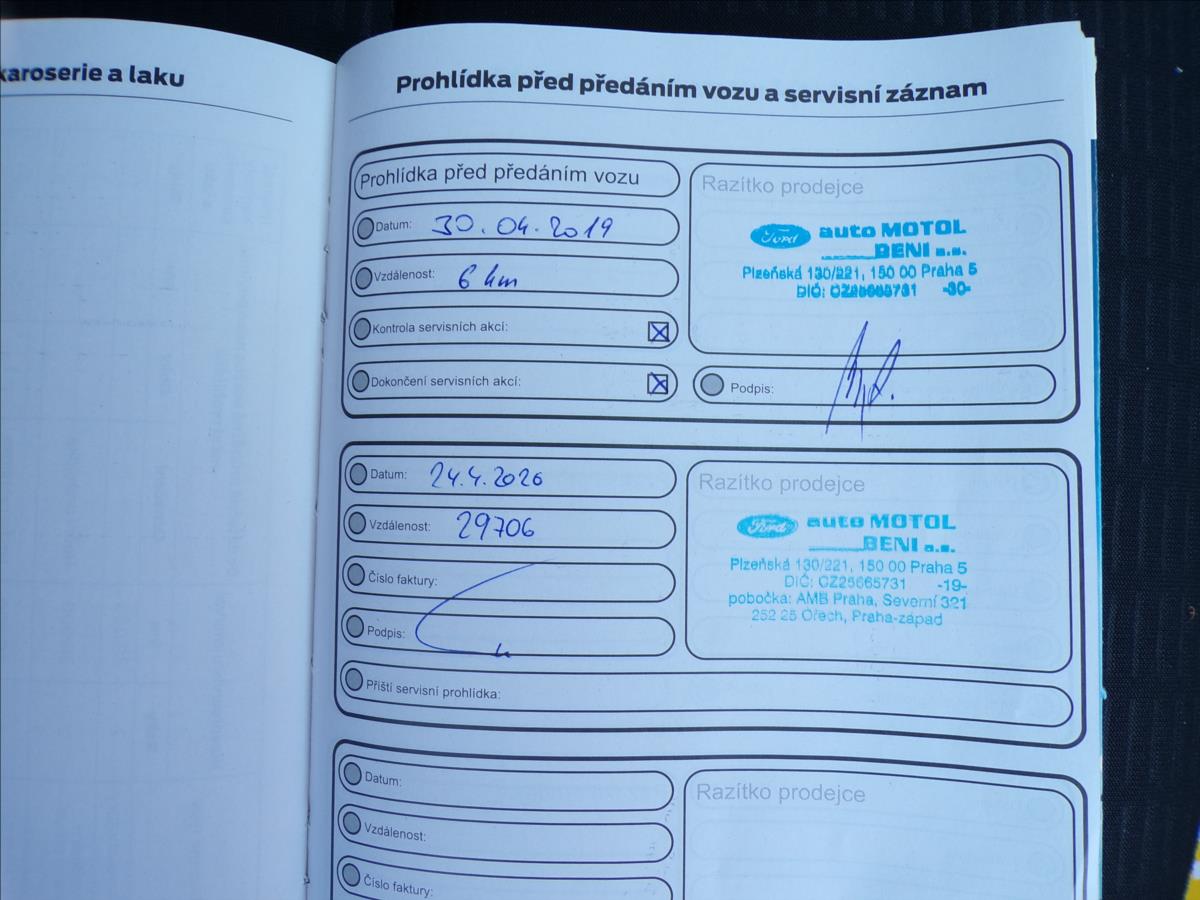 karoserie a laku
Prohlídka před předáním vozu a servisní záznam
Prohlídka před předáním vozu
Datum: 30.04.2019
Vzdálenost: 6 km
Kontrola servisních akcí:
Dokončení servisních akcí:
Razítko prodejce
Ford auto MOTOL
BENI a.s.
Plzeňská 130/221, 150 00 Praha 5
DIČ: CZ25665731 -30-
Podpis:
Datum: 24.4.2020
Vzdálenost: 29706
Číslo faktury:
Podpis:
Příští servisní prohlídka:
Razítko prodejce
Ford auto MOTOL
BENI a.s.
Plzeňská 130/221, 150 00 Praha 5
DIČ: CZ25665731 -19-
pobočka: AMB Praha, Severní 321
252 25 Ořech, Praha-západ
Datum:
Vzdálenost:
Číslo faktury:
Razítko prodejce